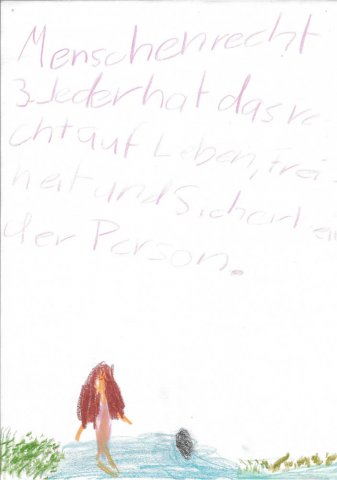 Menschenrecht
3. Jeder hat das re
cht auf Leben, Frei-
heit und Sicherheit
der Person.